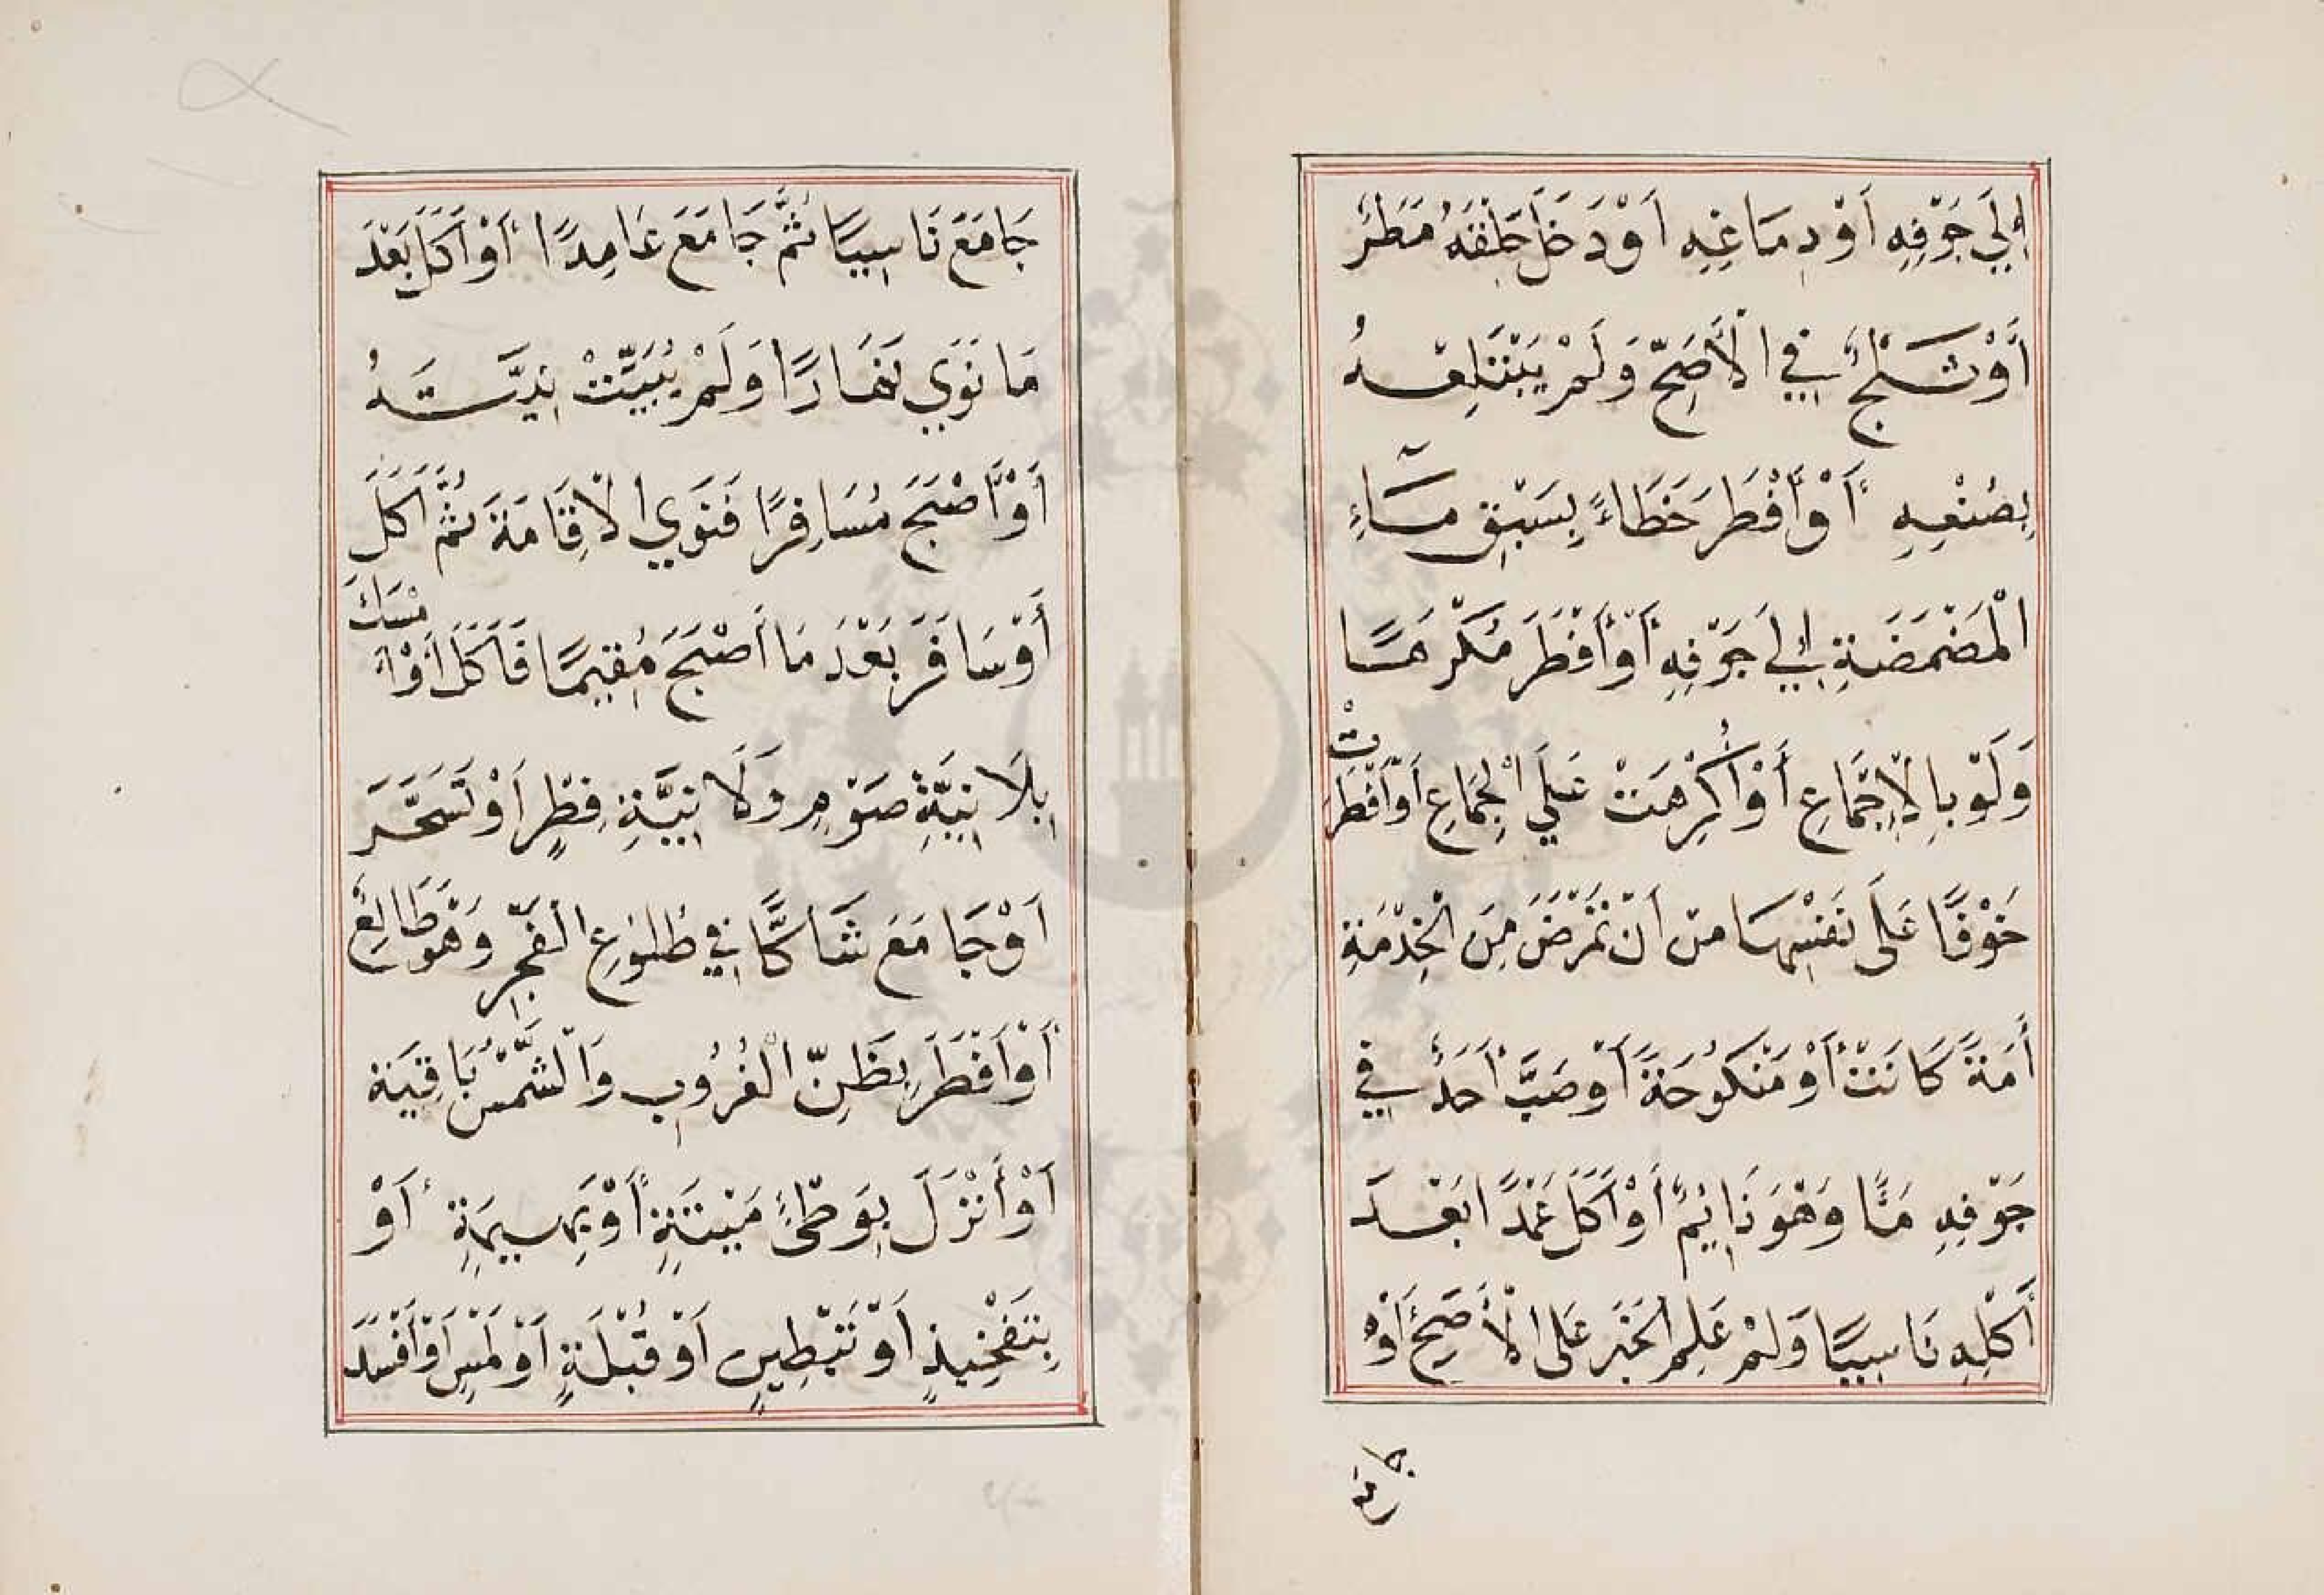 إِلَي جَوْفِهِ اَوْدِمَاغِهِ اَوْدَخَلَ حَلْقَهُ مَطَرٌ
أَوْثَلْجٌ فِي الْأَصَحِّ وَلَمْ يَبْتَلِعْهُ
بِصُنْعِهِ أَوْأَفْطَرَ خَطَاءً بِسَبْقِ مَاءِ
الْمَضْمَضَةِ اِلَي جَوْفِهِ أَوْأَفْطَرَ مُكْرَهًا
وَلَوْبِالْاِجِمَاعِ أَوْاُكْرِهَتْ عَلَي الْجِمَاعِ اَوْاَفْطَرَتْ
خَوْفًا عَلَى نَفْسِهَا مِنْ اَنْ تَمْرَضَ مِنَ الْخِدْمَةِ
أَمَةً كَانَتْ أَوْمَنْكُوحَةً اَوْصَبَّ اَحَدٌ فِي
جَوْفِهِ مَاءً وَهُوَ نَائِمٌ أَوْاَكَلَ عَمْدًا بَعْدَ
أَكْلِهِ نَاسِيًا وَلَمْ عَلِمَ الْخَبَرَ عَلَى الْأَصَحِّ أَوْ
جامع
جَامَعَ نَاسِيًا ثُمَّ جَامَعَ عَامِدًا أَوْاَكَلَ بَعْدَ
مَا نَوَي نَهَارًا وَلَمْ يُبَيِّتْ نِيَّتَهُ
أَوْأَصْبَحَ مُسَافِرًا فَنَوَي الْاِقَامَةَ ثُمَّ اَكَلَ
أَوْسَافَرَ بَعْدَ مَا أَصْبَحَ مُقِيمًا فَاَكَلَ اَوْاَمْسَكَ
بِلَا نِيَّةِ صَوْمٍ وَلَا نِيَّةِ فِطْرٍ اَوْتَسَحَّرَ
اَوْجَامَعَ شَاكًّا فِي طُلُوعِ الْفَجْرِ وَهُوَطَالِعٌ
أَوْاَفْطَرَ بِظَنِّ الْغُرُوبِ وَالْشَّمْسُ بَاقِيَة
اَوْأَنْزَلَ بِوَطْئِ مَيْتَةٍ أَوْبَهِيمَةٍ أَوْ
بِتَفْخِيذٍ اَوْتَبْطِينٍ اَوْقُبْلَةٍ اَوْلَمْسٍ اَوْاَفْسَدَ